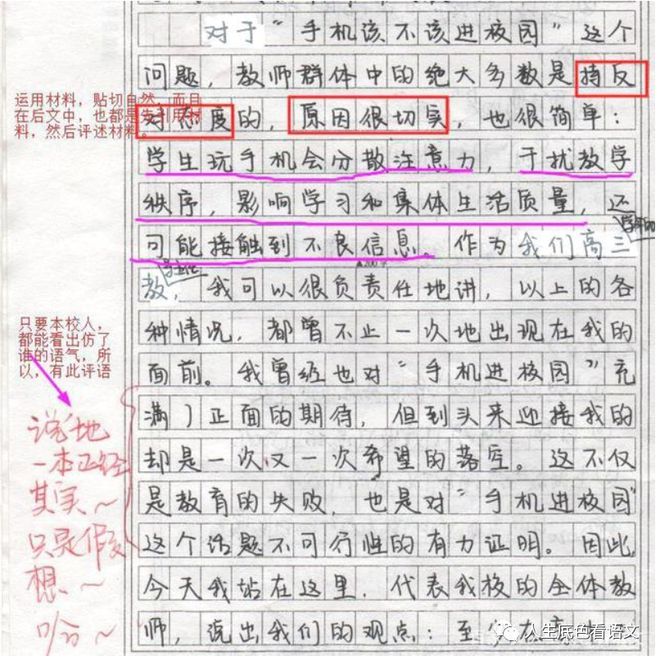 对于“手机该不该进校园”这个
问题，教师群体中的绝大多数是持反
对态度的，原因很切实，也很简单：
学生玩手机会分散注意力，干扰教学
秩序，影响学习和集体生活质量，还
可能接触到不良信息。作为我们高三
教，我可以很负责任地讲，以上的各
种情况，都曾不止一次地出现在我的
面前。我曾经也对“手机进校园”充
满了正面的期待，但到头来迎接我的
却是一次又一次希望的落空。这不仅
是教育的失败，也是对“手机进校园”
这个话题不可行性的有力证明。因此，
今天我站在这里，代表我校的全体教
师，说出我们的观点：至少在
运用材料，贴切自然，而且
在后文中，也都是先引用材
料，然后评述材料。
只要本校人，
都能看出仿了
谁的语气，所
以，有此评语
说地
一本正经
其实~
只是假
想~
哈~
人生底色看语文